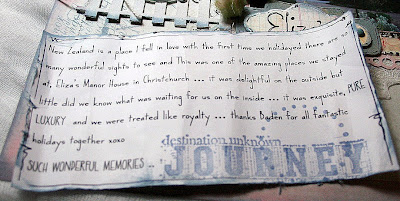 Eliza
New Zealand is a place I fell in love with the first time we holidayed there are so
many wonderful sights to see and This was one of the amazing places we stayed
at, Eliza's Manor House in Christchurch ... it was delightful on the outside but
little did we know what was waiting for us on the inside ... it was exquisite, PURE
LUXURY and we were treated like royalty ... thanks Baden for all fantastic
holidays together xoxo
destination unknown
SUCH WONDERFUL MEMORIES ... JOURNEY